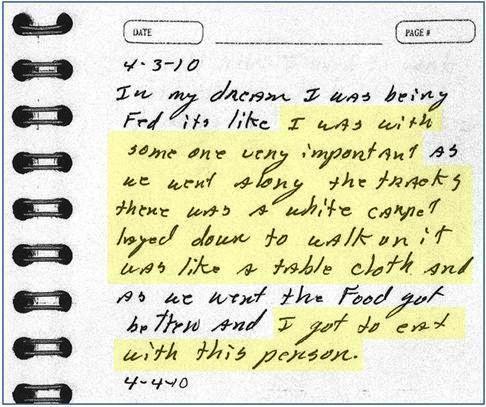 DATE
PAGE #
4-3-10
In my dream I was being
Fed its like I was with
some one very important as
we went along the tracks
there was a white carpet
layed down to walk on it
was like a table cloth and
as we went the Food got
better and I got to eat
with this person.
4-4-10